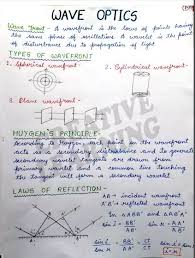 WAVE OPTICS
Wave front - A wavefront is the locus of points having
the same phase of oscillations. A wavelet is the point
of disturbance due to propagation of light
TYPES OF WAVEFRONT
1. Spherical wavefront -
2. Cylindrical wavefront -
3. Plane wavefront -
HUYGEN'S PRINCIPLE -
According to Huygen, each point on the wavefront
acts as a secondary disturbance and to generate
secondary wavelet tangents are drawn from
primary wavelet and a common line touching
the tangent will form a secondary wavelet
LAWS OF REFLECTION -
AB = incident wavefront
A'B' = reflected wavefront
In ΔABB' and ΔAA'B'
sin i
sin r